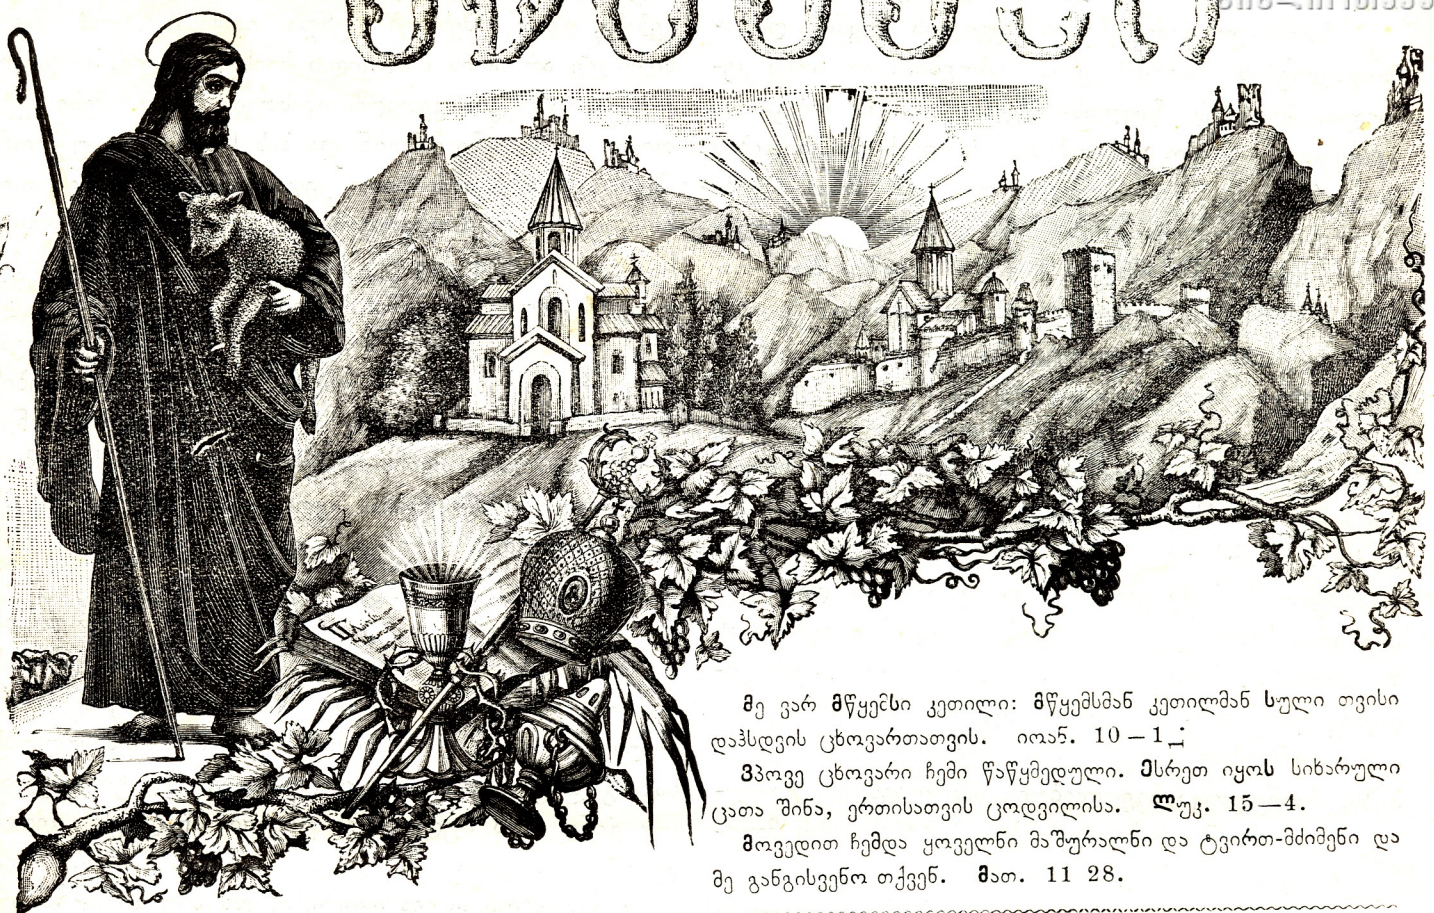 მე ვარ მწყემსი კეთილი: მწყემსმან კეთილმან სული თვისი
დაჰსდვის ცხოვართათვის. იოან. 10—1
ვპოვე ცხოვარი ჩემი წაწყმედული. ესრეთ იყოს სიხარული
ცათა შინა, ერთისათვის ცოდვილისა. ლუკ. 15—4.
მოვედით ჩემდა ყოველნი მაშურალნი და ტვირთ-მძიმენი და
მე განგისვენო თქვენ. მათ. 11 28.